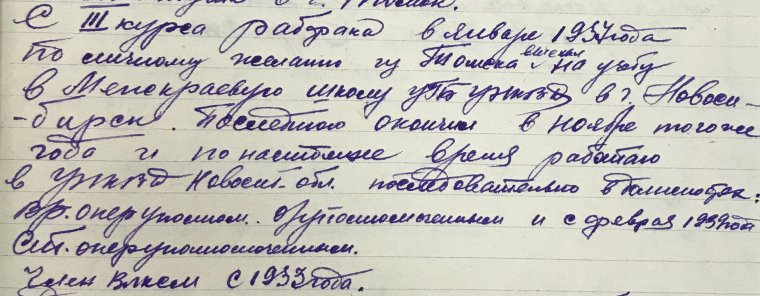 С III курса рабфака в январе 1937 года
по личному желанию из Томска выехал на учебу
в Межкраевую школу УГБ УНКВД в г. Новоси-
-бирск. Последнюю окончил в ноябре того же
года и по настоящее время работаю
в УНКВД Новосиб. обл. последовательно в должностях:
опер. уполном. и с февраля 1939 года
Ст. оперуполномоченным.
Член ВЛКСМ с 1933 года.